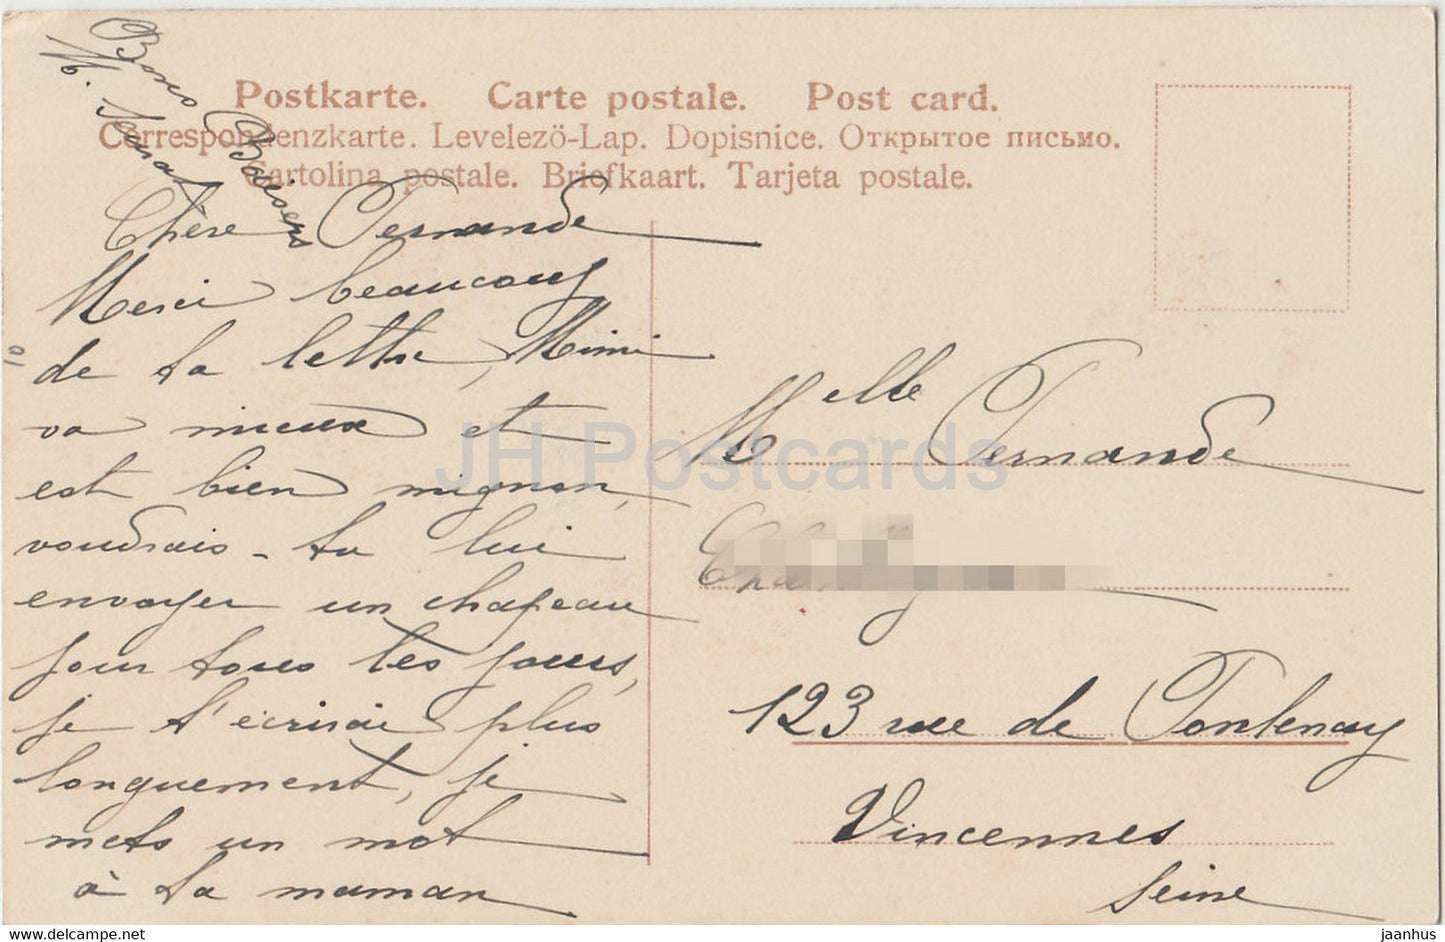 Bons Baisers
Postkarte. Carte postale. Post card.
Correspondenzkarte. Levelezö-Lap. Dopisnice. Открытое письмо.
Cartolina postale. Briefkaart. Tarjeta postale.
Chère Fernande
Merci beaucoup
de ta lettre, Mimi
va mieux et
est bien mignon,
voudrais-tu lui
envoyer un chapeau
pour tous les jours,
je t'écrirai plus
longuement, je
mets un mot
à ta maman
10
Melle Fernande
123 rue de Fontenay
Vincennes
Seine
JH Postcards
www.delcampe.net
jaanhus